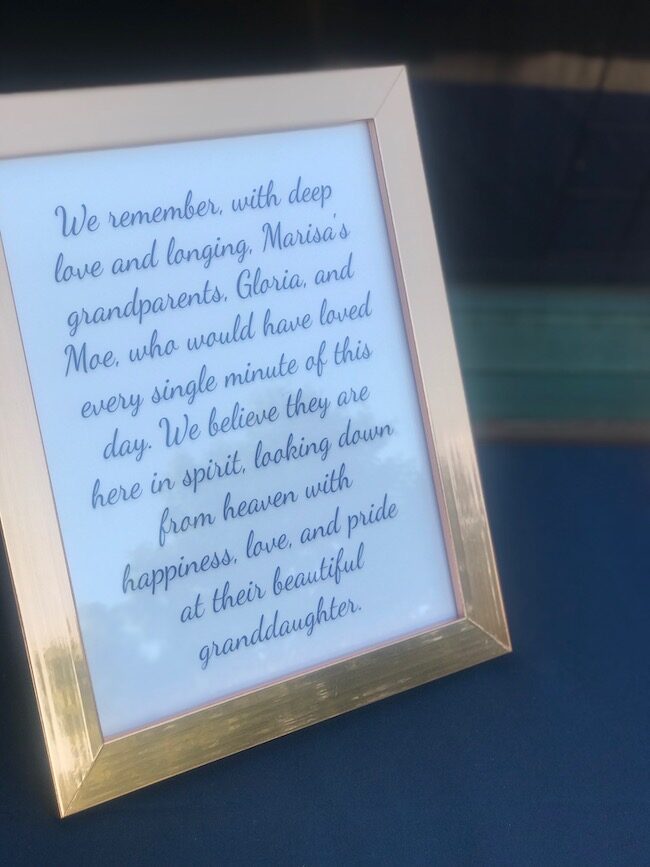 We remember, with deep
love and longing, Marisa's
grandparents, Gloria, and
Moe, who would have loved
every single minute of this
day. We believe they are
here in spirit, looking down
from heaven with
happiness, love, and pride
at their beautiful
granddaughter.